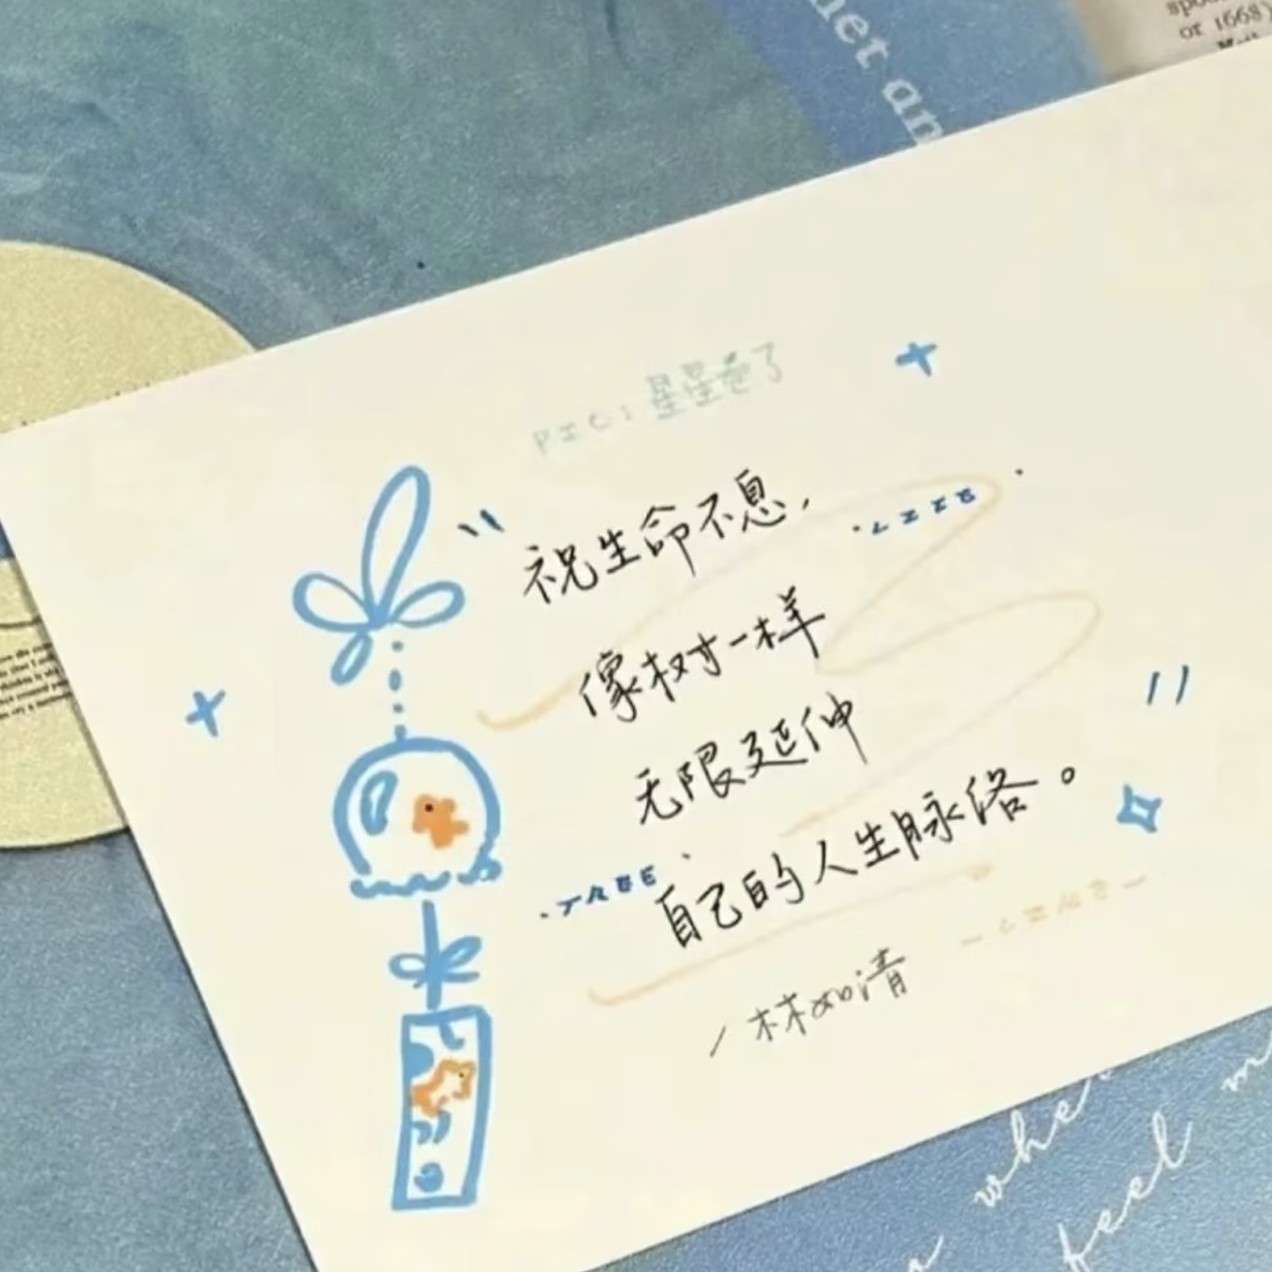 net an
or 1668)
PIC:星星卷了
祝生命不息,
LIFE
像树一样
无限延伸
TREE
自己的人生脉络。
/林如清
whe
feel m